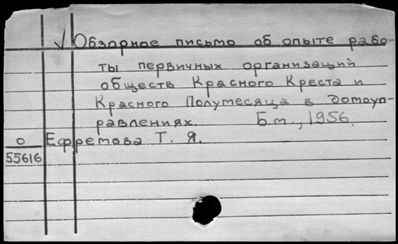 √ Обзорное письмо об опыте рабо-
ты первичных организаций
обществ Красного Креста и
Красного Полумесяца в домоуп-
равлениях. Б.м., 1956.
О Ефремова Т. Я.
55616